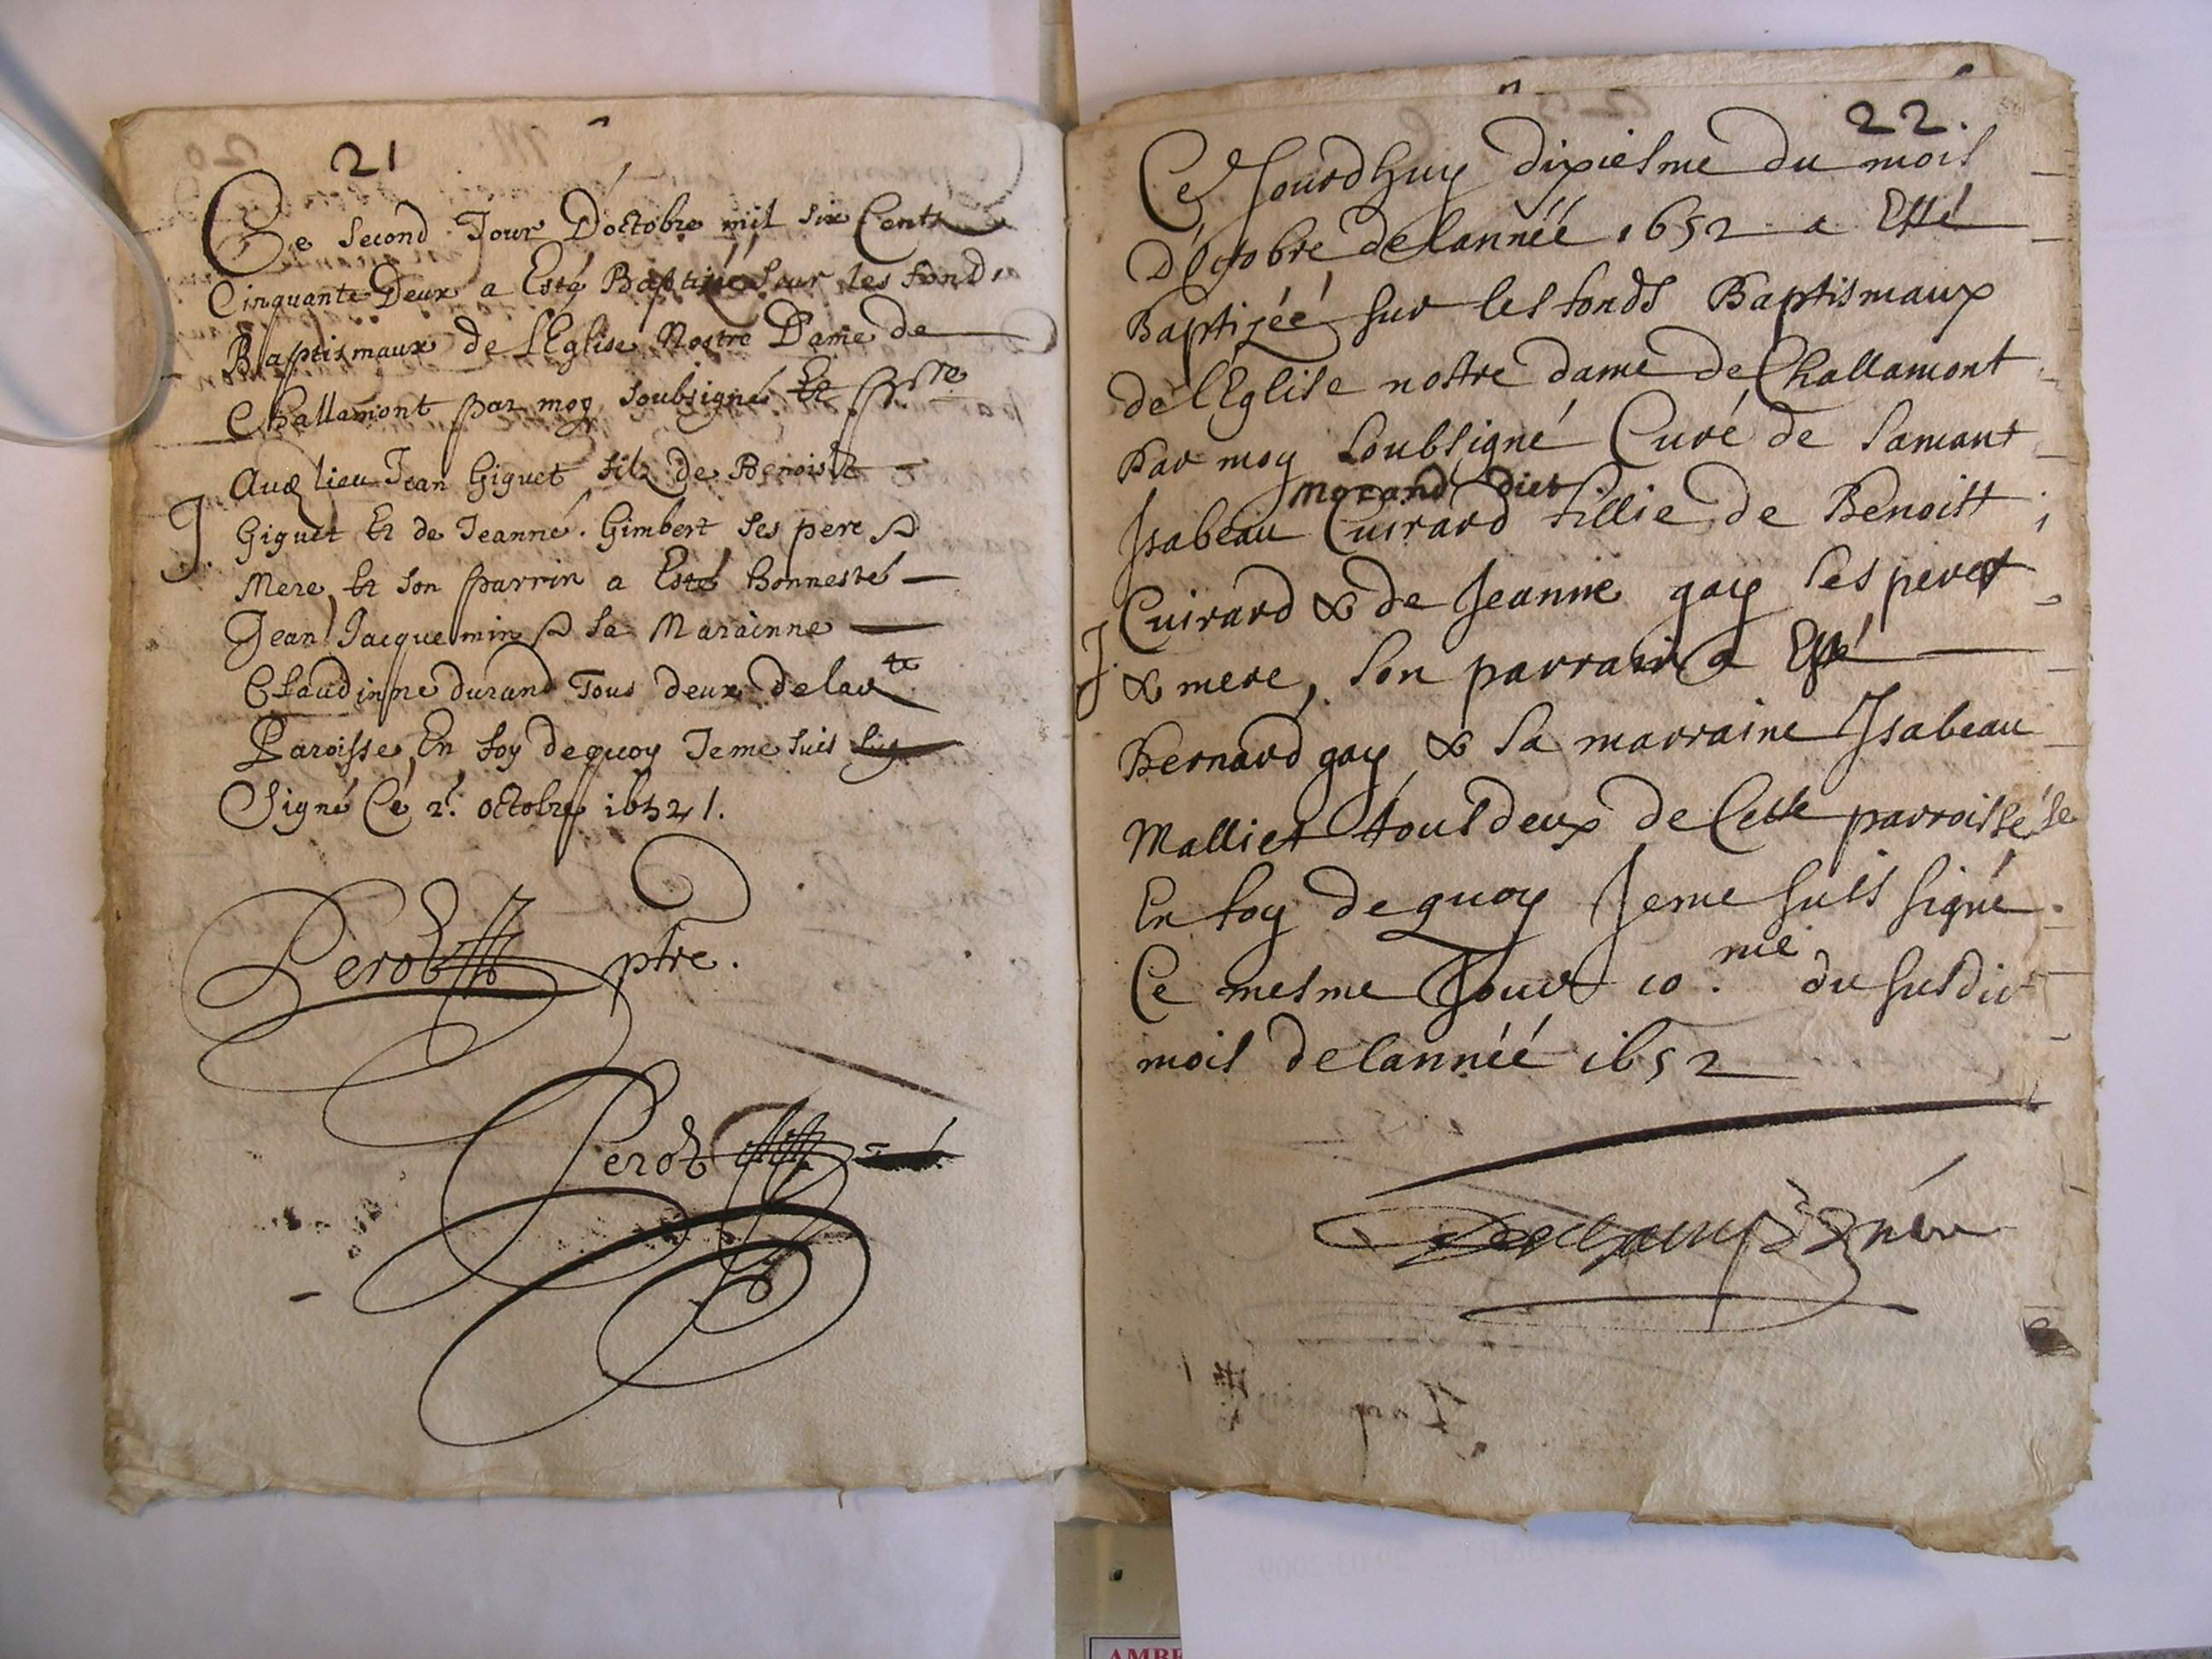 21
Ce second Jour D'octobre mil six Cents
Cinquante Deux a Esté Baptizé sur les fonds
Baptismaux de L'Eglise Nostre Dame de
Challamont par moy soubsigné Et
Aud lieu Jean Giguet filz de Benoist
Giguet Et de Jeanne. Gimbert ses pere &
J.
Mere, Et son parrin a Esté honnesté
Jean Jacquemin & sa Marainne
Claudinne durand Tous deux de lad te
Paroisse, En foy dequoy Je me suis sig
Signé Ce 2. octobre 1652 /.
Perod ptre.
Perod
22.
Ce Jourdhuy dixiesme du mois
D'Octobre de lannéé 1652 a Esté
Baptizéé sur les fonds Baptismaux
de l'Eglise nostre dame de Challamont
Par moy soubsigné Curé de samant
Morand dict
Isabeau Cuirard fillie de Benoist
Cuirard & de Jeanne gay ses peret
J.
& mere, son parrain a Esté
Bernard gay & sa marraine Isabeau
Malliet tous deux de Cette parroisse
En foy de quoy Je me suis signé.
Ce mesme Jour 10. me du susdit
mois de lannéé 1652